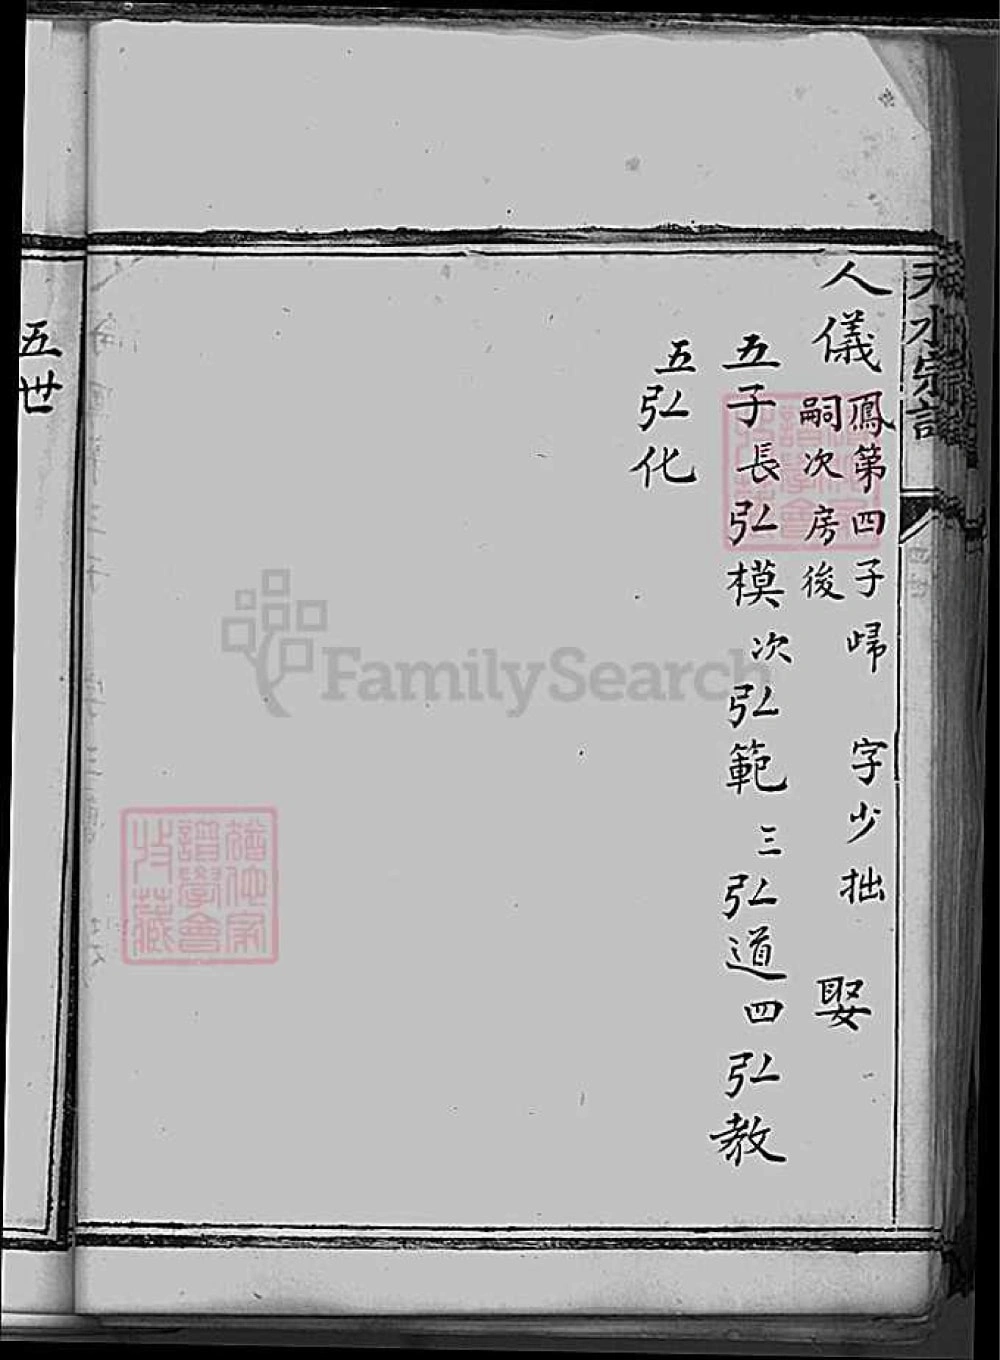 天水宗譜
人儀
鳳第四子歸 字少拙
嗣次房後
娶
五子長弘模次弘範三弘道四弘教
五弘化
五世
FamilySearch
譜學會
收藏